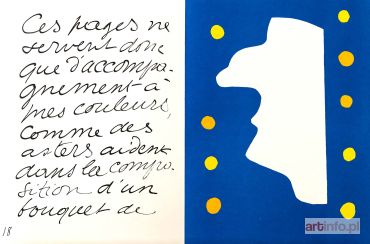 Ces pages ne
servent donc
que d'accompa-
gnement à
mes couleurs,
comme des
asters aident
dans la compo-
sition d'un
bouquet de
18
artinfo.pl